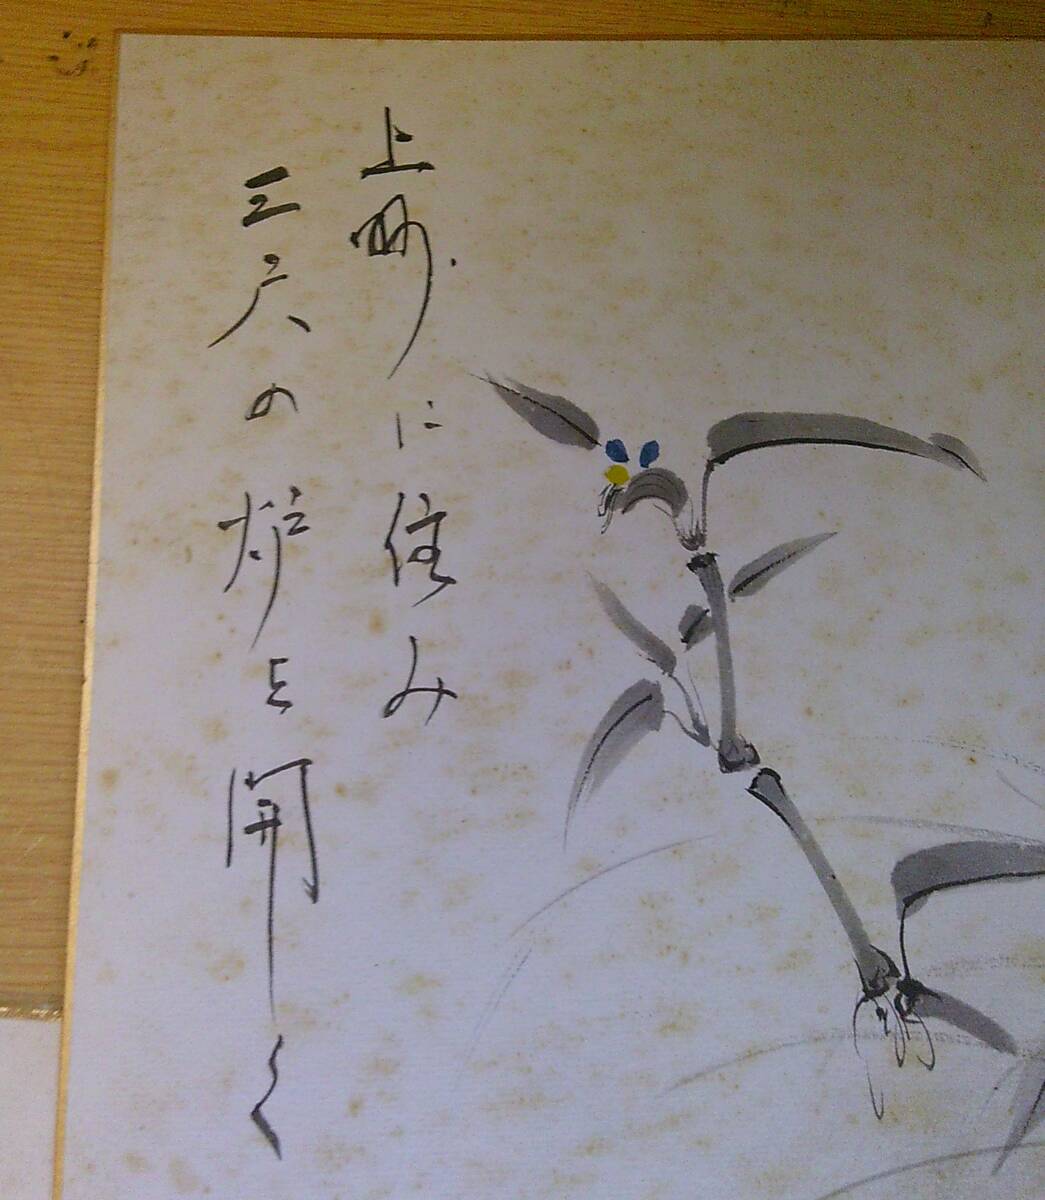 上州に住み
三尺の炉を開く